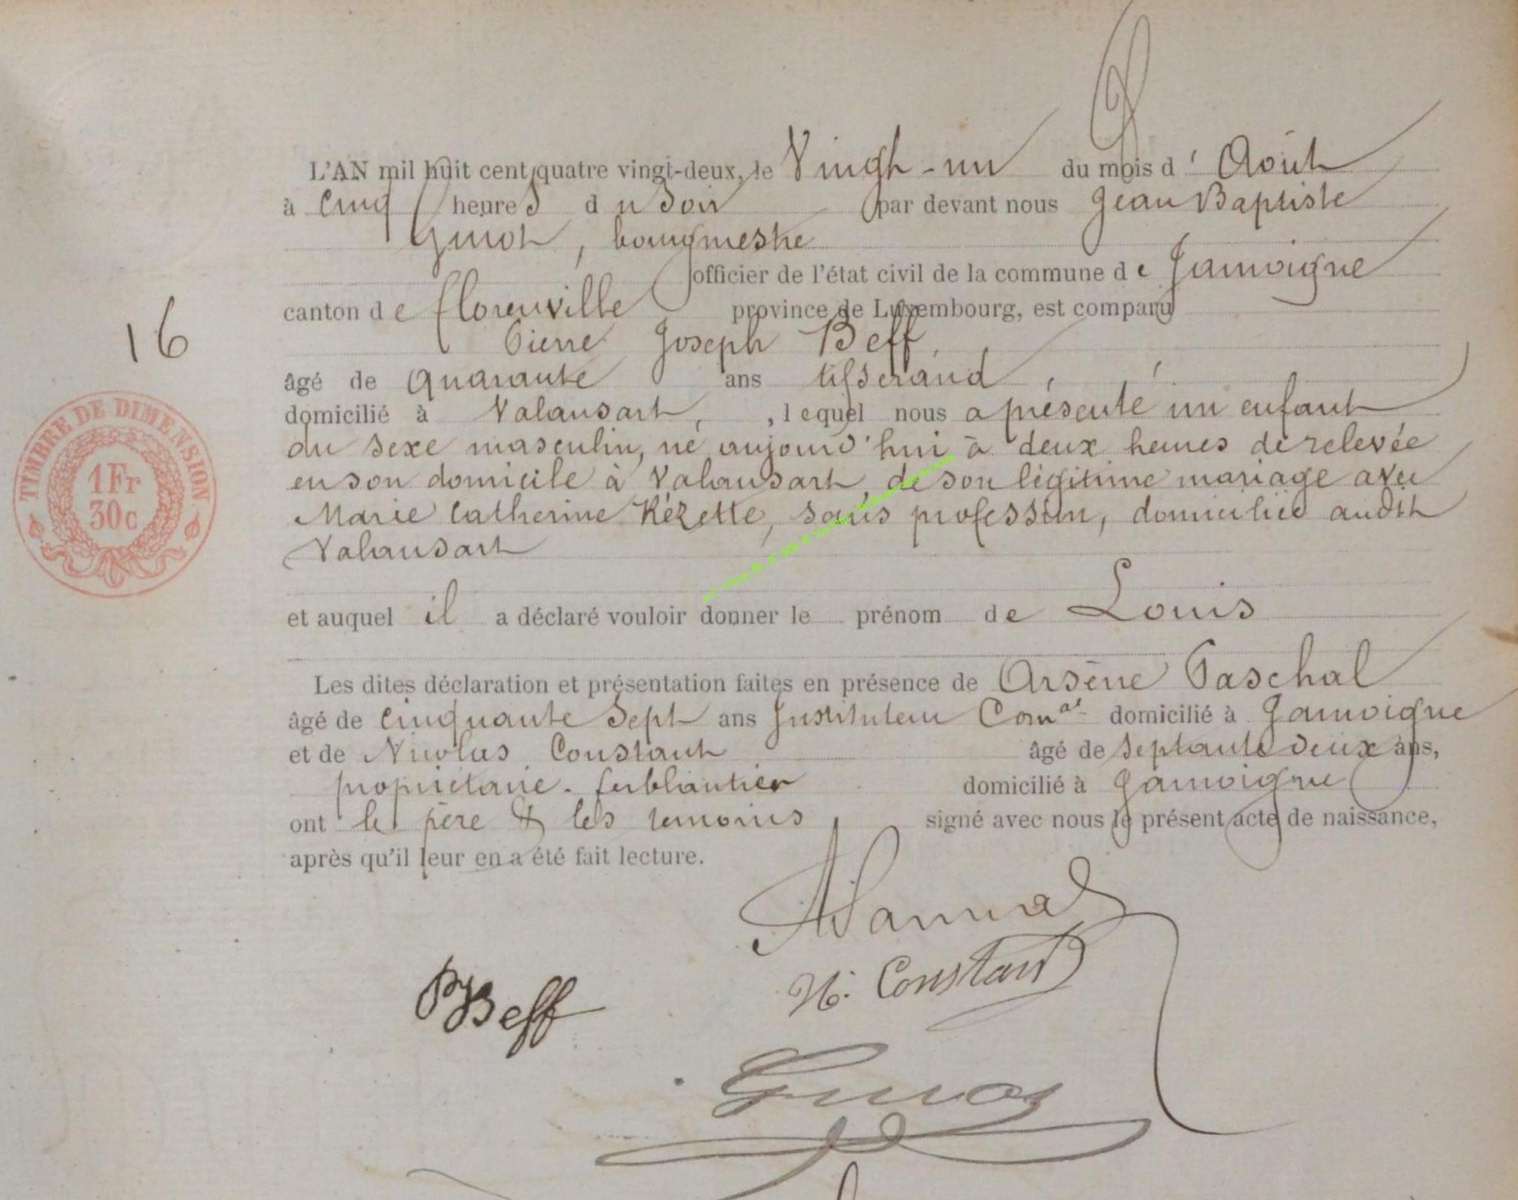 L'AN mil huit cent quatre vingt-deux, le Vingt-un du mois d' Août
à cinq heures du soir par devant nous Jean Baptiste
bourgmestre
officier de l'état civil de la commune de Jamoigne
canton de florenville province de Luxembourg, est comparu
Pierre Joseph Beff,
âgé de quarante ans tisserand,
domicilié à Valansart, , lequel nous a présenté un enfant
du sexe masculin, né aujourd'hui à deux heures de relevée
en son domicile à Valansart, de son légitime mariage avec
Marie Catherine Kézette, sans profession, domiciliée audit
Valansart
et auquel il a déclaré vouloir donner le prénom de Louis
Les dites déclaration et présentation faites en présence de Arsène Paschal
âgé de cinquante sept ans Instituteur Comal domicilié à Jamoigne
et de Nicolas Constant âgé de septante deux ans,
propriétaire - ferblantier domicilié à Jamoigne
ont le père & les témoins signé avec nous le présent acte de naissance,
après qu'il leur en a été fait lecture.
16
TIMBRE DE DIMENSION
1Fr
30c
N. Constant
PJBeff